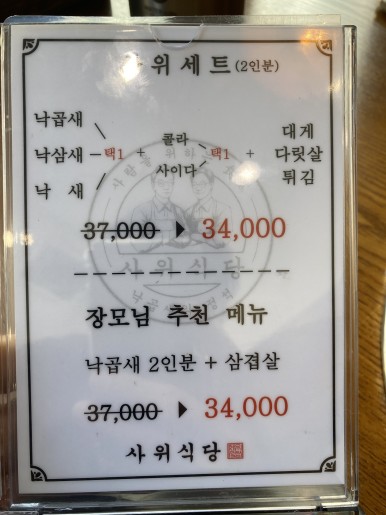 사위세트(2인분)
낙곱새
낙삼새 - 택1 + 콜라 사이다 택1 + 대게 다릿살 튀김
낙 새
37,000 ▶ 34,000
사위식당
장모님 추천 메뉴
낙곱새 2인분 + 삼겹살
37,000 ▶ 34,000
사위식당